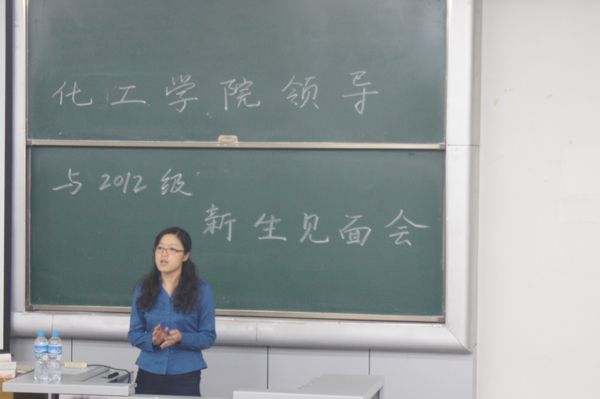 化工学院领导
与2012级
新生见面会